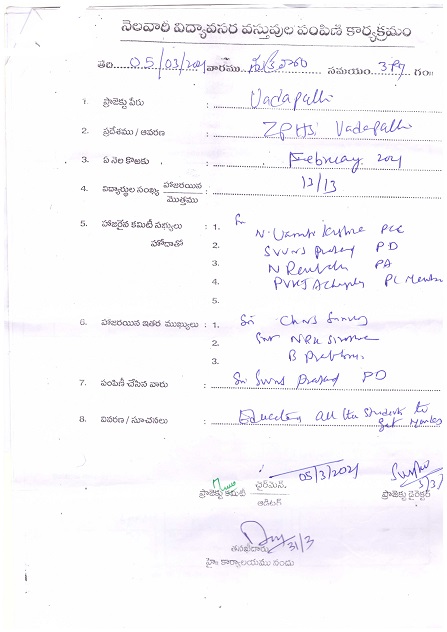 నెలవారీ విద్యావసర వస్తువుల పంపిణీ కార్యక్రమం
తేది 05/03/2021 వారము శుక్రవారం సమయం: 3 గం॥
1. ప్రాజెక్టు పేరు : Vadapalli
2. ప్రదేశము / ఆవరణ : ZPHS Vadapalli
3. ఏ నెల కొఱకు : February 2021
4. విద్యార్థుల సంఖ్య హాజరయిన / మొత్తము : 13/13
5. హాజరైన కమిటీ సభ్యులు హోదాతో : 1. N. Vamsi Krishna PCC
2. SVVNS Prasad PD
3. N Renuka PA
4. PVHJ PC Member
5.
6. హాజరయిన ఇతర ముఖ్యులు : 1. Sri
2. NRK
3. B
7. పంపిణీ చేసిన వారు : Sri Prasad PD
8. వివరణ / సూచనలు : Educating all the Students to get Marks
05/3/2021
ప్రాజెక్టు కమిటీ చైర్‌మెన్. / ఆడిటర్
ప్రాజెక్టు డైరెక్టర్
31/3
తనిఖీదారు
హై కార్యాలయము నందు